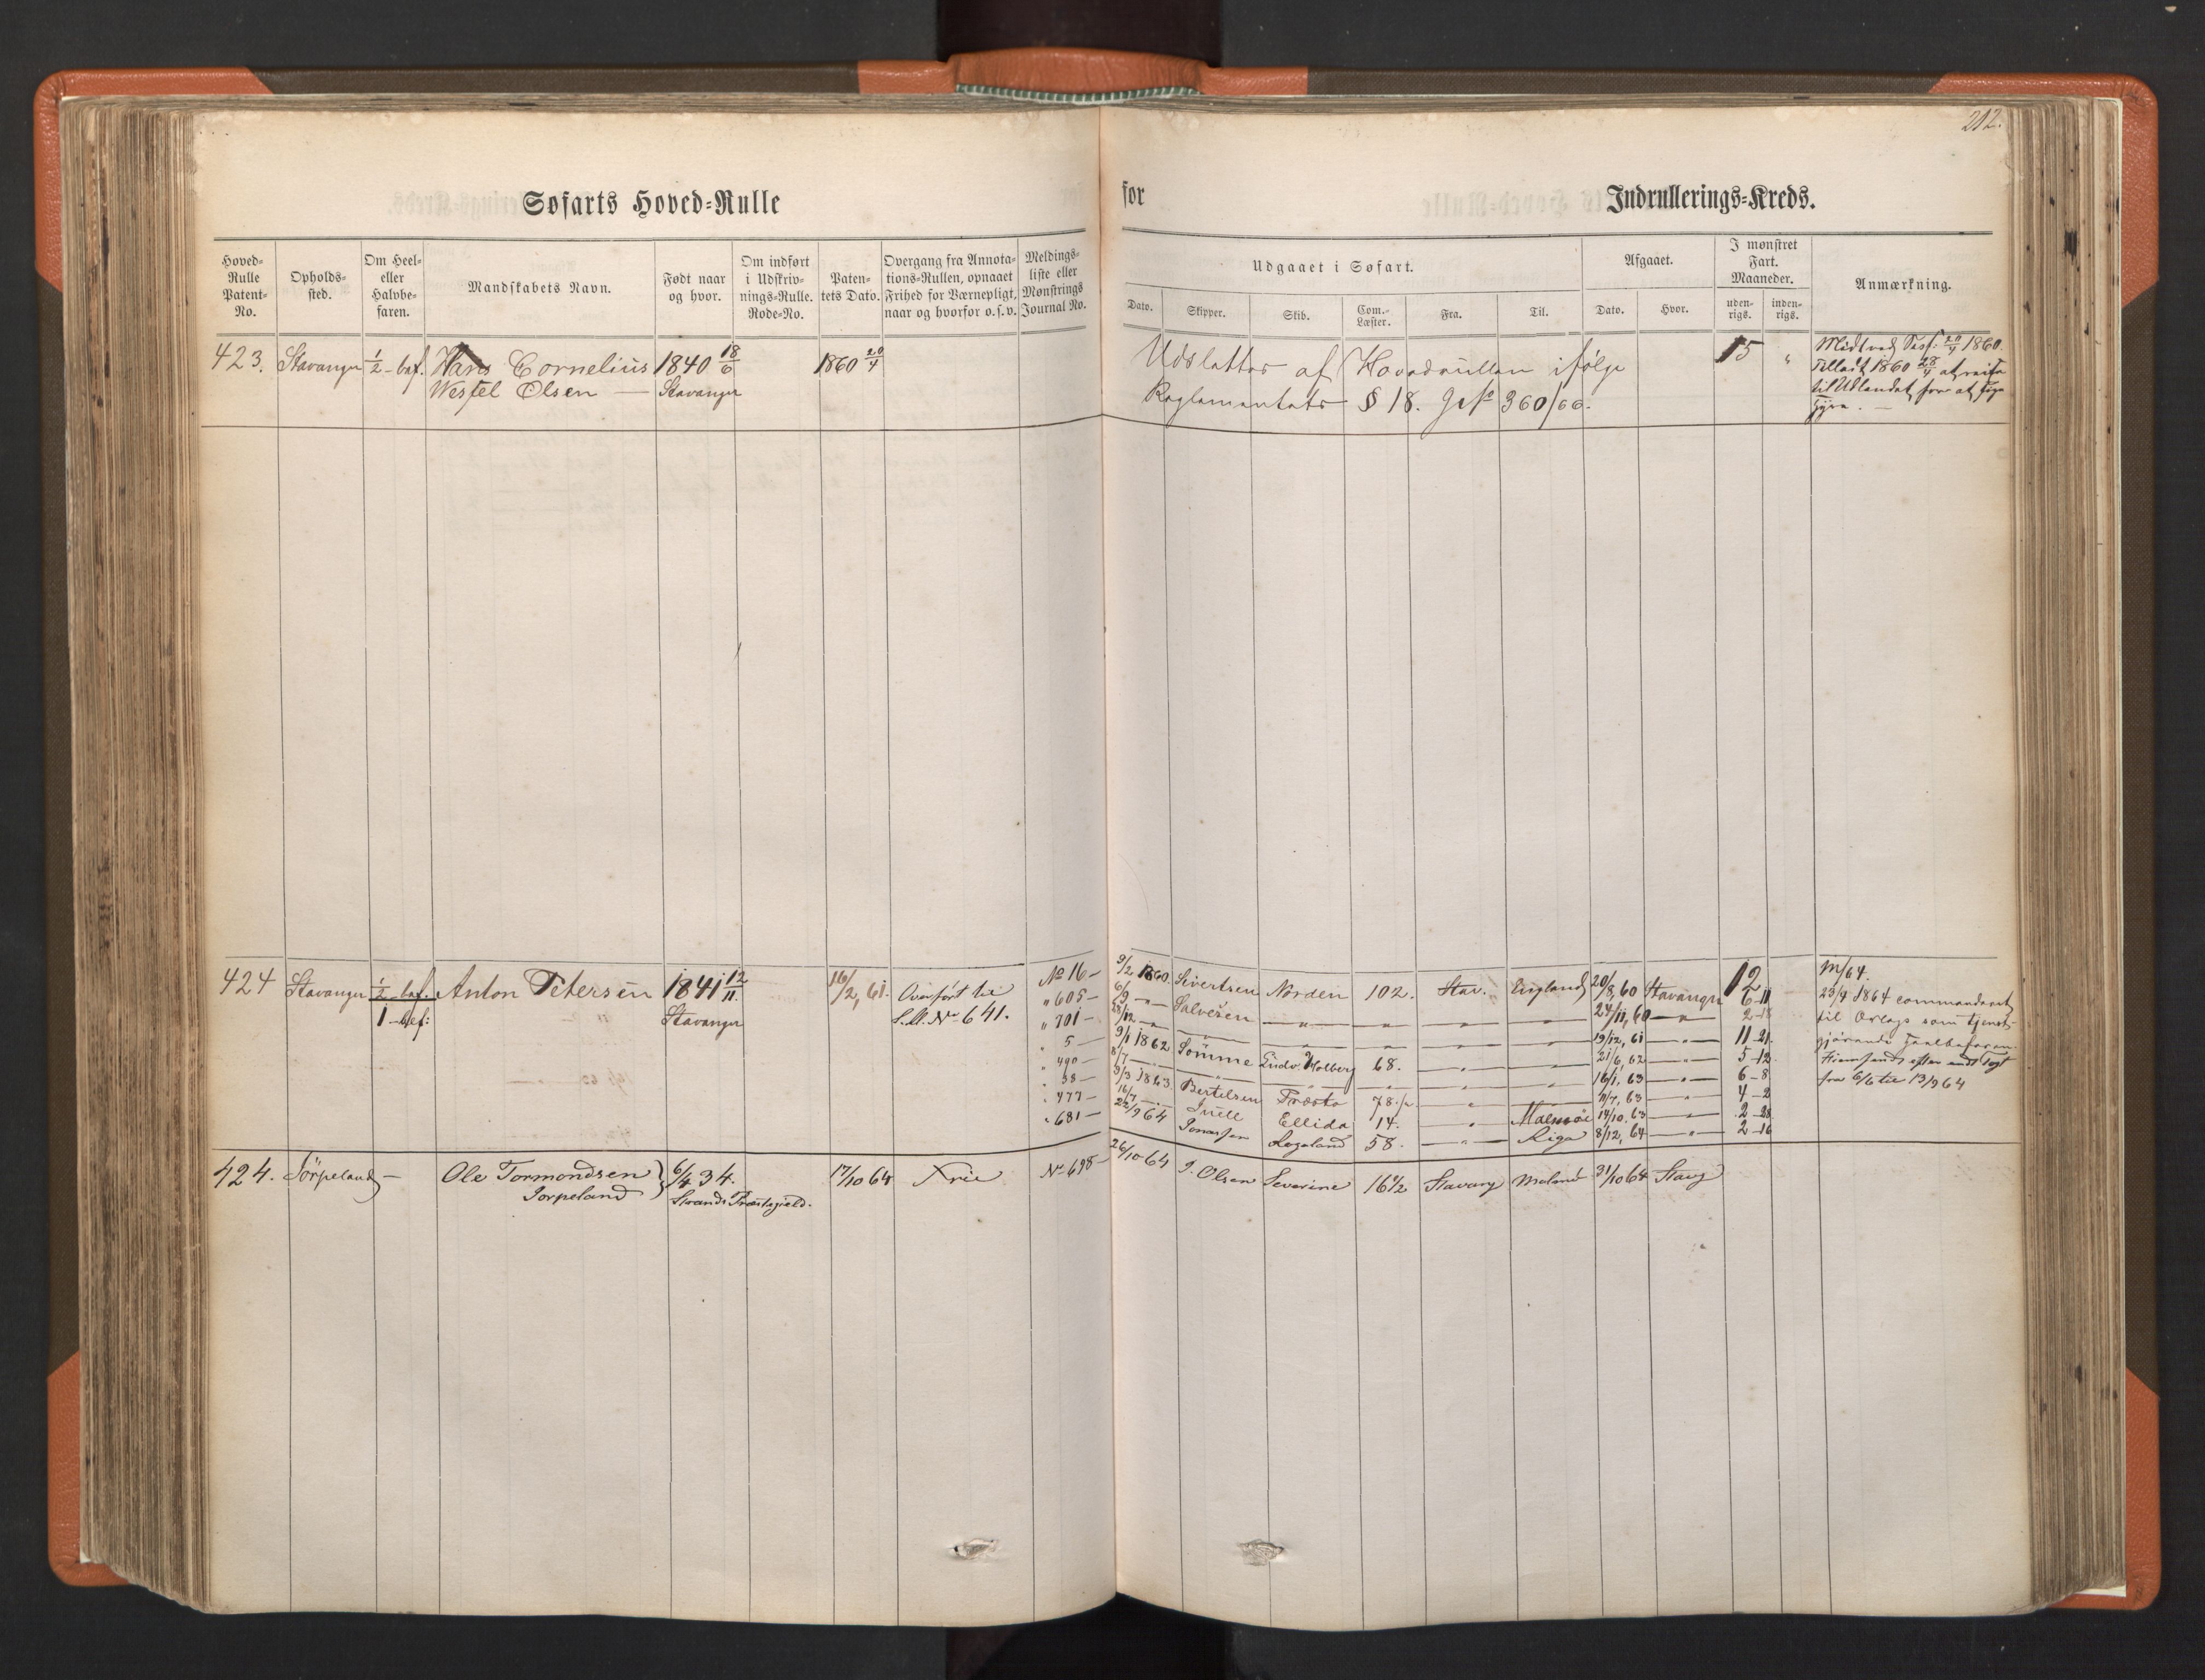 212.
Søfarts Hoved-Rulle
for
Indrullerings-Kreds.
Hoved-Rulle Patent-No.
Opholds-sted.
Om Heel- eller Halvbe-faren.
Mandskabets Navn.
Født naar og hvor.
Om indført i Udskriv-nings-Rulle. Rode-No.
Paten-tets Dato.
Overgang fra Annota-tions-Rullen, opnaaet Frihed for Værnepligt, naar og hvorfor o.s.v.
Meldings-liste eller Mønstrings Journal No.
Udgaaet i Søfart.
Dato.
Skipper.
Skib.
Com.-Læster.
Fra.
Til.
Afgaaet.
Dato.
Hvor.
I mønstret Fart. Maaneder.
uden-rigs.
inden-rigs.
Anmærkning.
423. Stavanger ½-baf. Hans Cornelius 1840 18/6 1860 20/4
Westel Olsen — Stavanger
Udslettes af Hovedrullen ifølge
Reglementets § 18. 360/66.
15 "
1860.
1860 28/4 at reise
til Udlandet for at
424 Stavanger ½-baf. Anton Petersen 1841 12/11. 16/2, 61. Overført til
1-bef: Stavanger No 641.
No 16 — 9/2 1860. Sivertsen Norden 102. Stav. England 20/8, 60 Stavanger 12
" 605 — Salvesen — " — 24/11, 60 — " — 6-11
" 701 — 19/12, 61 — " — 11-21
" 5 — 9/1 1862 Sømme Ludv. Holberg 68. 21/6, 62 — " — 5-12
" 490 — 8/7 — 16/1, 63 — " — 6-8
" 38 — 3/3 1863. Bertelsen Trøsto 78. 11/7, 63 — " — 4-2
" 477 — 16/7 — Ellida 14. — " — Malmöe 14/10, 63 — " — 2-28
" 681 — 22/9 64 Jonassen Rogaland 58. — " — Riga 8/12, 64 — " — 2-16
M/64.
23/4 1864 commanderet
til Orlogs som tjenst-
gjørende
fra 6/6 til 13/9 64
424. Jörpeland — Ole Tormondsen } 6/4 34. 17/10 64 Frie No 698 — 26/10 64 J. Olsen Severine 16½ Stavang 31/10 64 Stavg
Jorpeland Strands Præstegield.